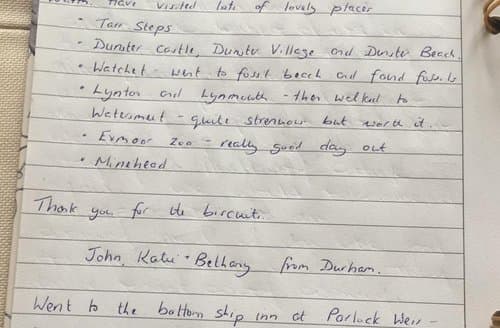 Have visited lots of lovely places
• Tarr Steps
• Dunster castle, Dunster Village and Dunster Beach.
• Watchet - went to fossil beach and found fossils
• Lynton and Lynmouth - then walked to
Watersmeet - quite strenuous but worth it.
• Exmoor zoo - really good day out
• Minehead
Thank you for the biscuits.
John, Katie + Bethany from Durham.
Went to the bottom ship inn at Porlock Weir -